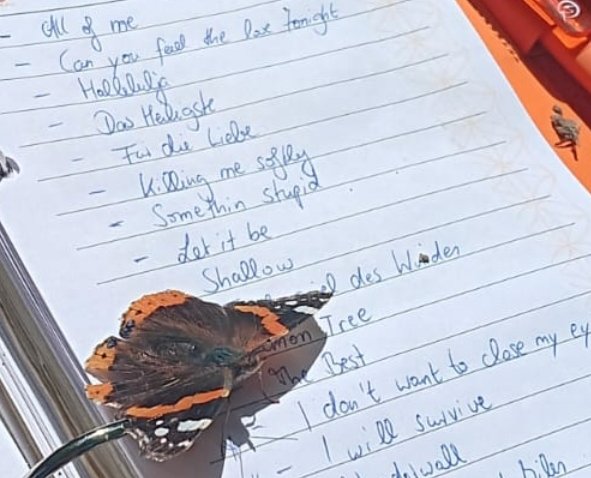 - All of me
- Can you feel the love Tonight
- Halleluja
- Das Heiligste
- Für die Liebe
- Killing me softly
- Somethin stupid
- Let it be
Shallow
des Winden
Tree
The Best
I don't want to close my ey
- I will survive